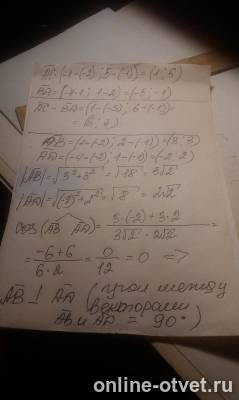 DC(-1-(-2); 5-(-1)) = (1; 6)
BA = (-4-1; 1-2) = (-5; -1)
DC - BA = (1-(-5); 6-(-1)) =
= (6; 7)
AB = (1-(-2); 2-(-1)) = (3; 3)
AD = (-4-(-2); 1-(-1)) = (-2; 2)
|AB| = √3²+3² = √18 = 3√2
|AD| = √(-2)²+2² = √8 = 2√2
cos (AB AD) = 3·(-2)+3·2 / 3√2 · 2√2 =
= -6+6 / 6·2 = 0/12 = 0 =>
AB ⊥ AD (угол между
векторами
AB и AD = 90°)
online-otvet.ru